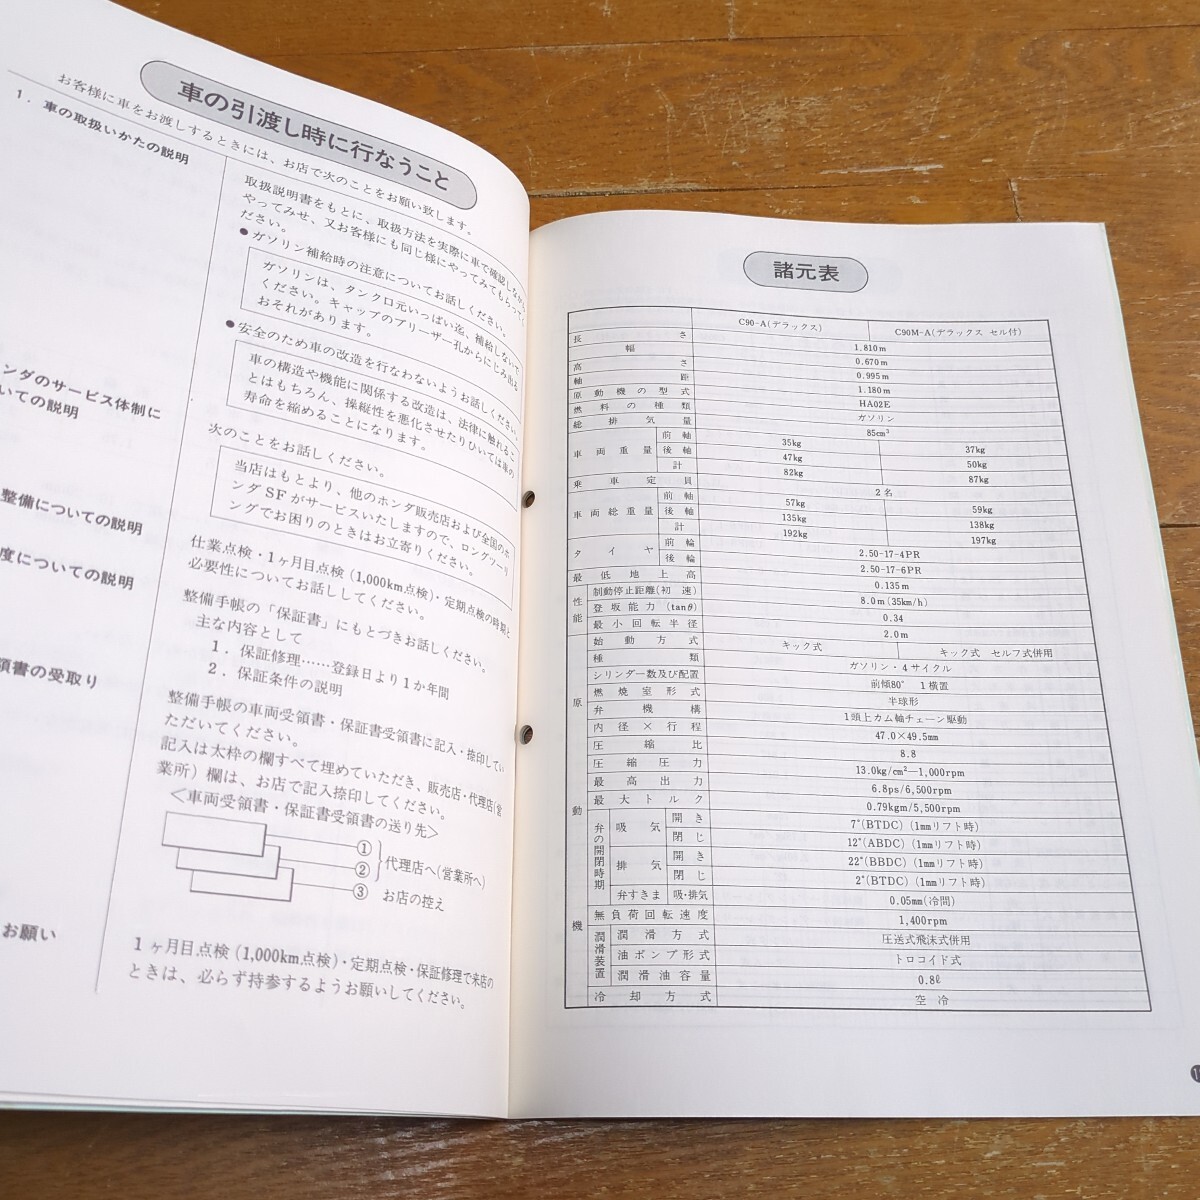 車の引渡し時に行なうこと
お客様に車をお渡しするときには、お店で次のことをお願い致します。
1．車の取扱いかたの説明
取扱説明書をもとに、取扱方法を実際に車で確認しながら
やってみせ、又お客様にも同じ様にやってみてもらって
ください。
●ガソリン補給時の注意についてお話しください。
ガソリンは、タンク口元いっぱい迄、補給しないで
ください。キャップのブリーザー孔からにじみ出る
おそれがあります。
●安全のため車の改造を行なわないようお話しください。
車の構造や機能に関係する改造は、法律に触れるこ
とはもちろん、操縦性を悪化させたりひいては車の
寿命を縮めることになります。
ンダのサービス体制に
いての説明
次のことをお話しください。
当店はもとより、他のホンダ販売店および全国のホ
ンダSFがサービスいたしますので、ロングツーリ
ングでお困りのときはお立寄りください。
整備についての説明
仕業点検・1ヶ月目点検（1,000km点検）・定期点検の時期と
必要性についてお話ししてください。
度についての説明
整備手帳の「保証書」にもとづきお話しください。
主な内容として
1．保証修理……登録日より1か年間
2．保証条件の説明
領書の受取り
整備手帳の車両受領書・保証書受領書に記入・捺印してい
ただいてください。
記入は太枠の欄すべて埋めていただき、販売店・代理店（営
業所）欄は、お店で記入捺印してください。
＜車両受領書・保証書受領書の送り先＞
①
② 代理店へ（営業所へ）
③ お店の控え
お願い
1ヶ月目点検（1,000km点検）・定期点検・保証修理で来店の
ときは、必らず持参するようお願いしてください。
諸元表
C90-A(デラックス) C90M-A(デラックス セル付)
長さ 1.810m
幅 0.670m
高さ 0.995m
軸距 1.180m
原動機の型式 HA02E
燃料の種類 ガソリン
総排気量 85cm³
車両重量 前軸 35kg 37kg
後軸 47kg 50kg
計 82kg 87kg
乗車定員 2名
車両総重量 前軸 57kg 59kg
後軸 135kg 138kg
計 192kg 197kg
タイヤ 前輪 2.50-17-4PR
後輪 2.50-17-6PR
最低地上高 0.135m
性能 制動停止距離(初速) 8.0m(35km/h)
登坂能力(tanθ) 0.34
最小回転半径 2.0m
原動機 始動方式 キック式 キック式 セルフ式併用
種類 ガソリン・4サイクル
シリンダー数及び配置 前傾80° 1横置
燃焼室形式 半球形
弁機構 1頭上カム軸チェーン駆動
内径×行程 47.0×49.5mm
圧縮比 8.8
圧縮圧力 13.0kg/cm²−1,000rpm
最高出力 6.8ps/6,500rpm
最大トルク 0.79kgm/5,500rpm
弁の開閉時期 吸気 開き 7°(BTDC)(1mmリフト時)
閉じ 12°(ABDC)(1mmリフト時)
排気 開き 22°(BBDC)(1mmリフト時)
閉じ 2°(BTDC)(1mmリフト時)
弁すきま 吸・排気 0.05mm(冷間)
無負荷回転速度 1,400rpm
潤滑装置 潤滑方式 圧送式飛沫式併用
油ポンプ形式 トロコイド式
潤滑油容量 0.8ℓ
冷却方式 空冷